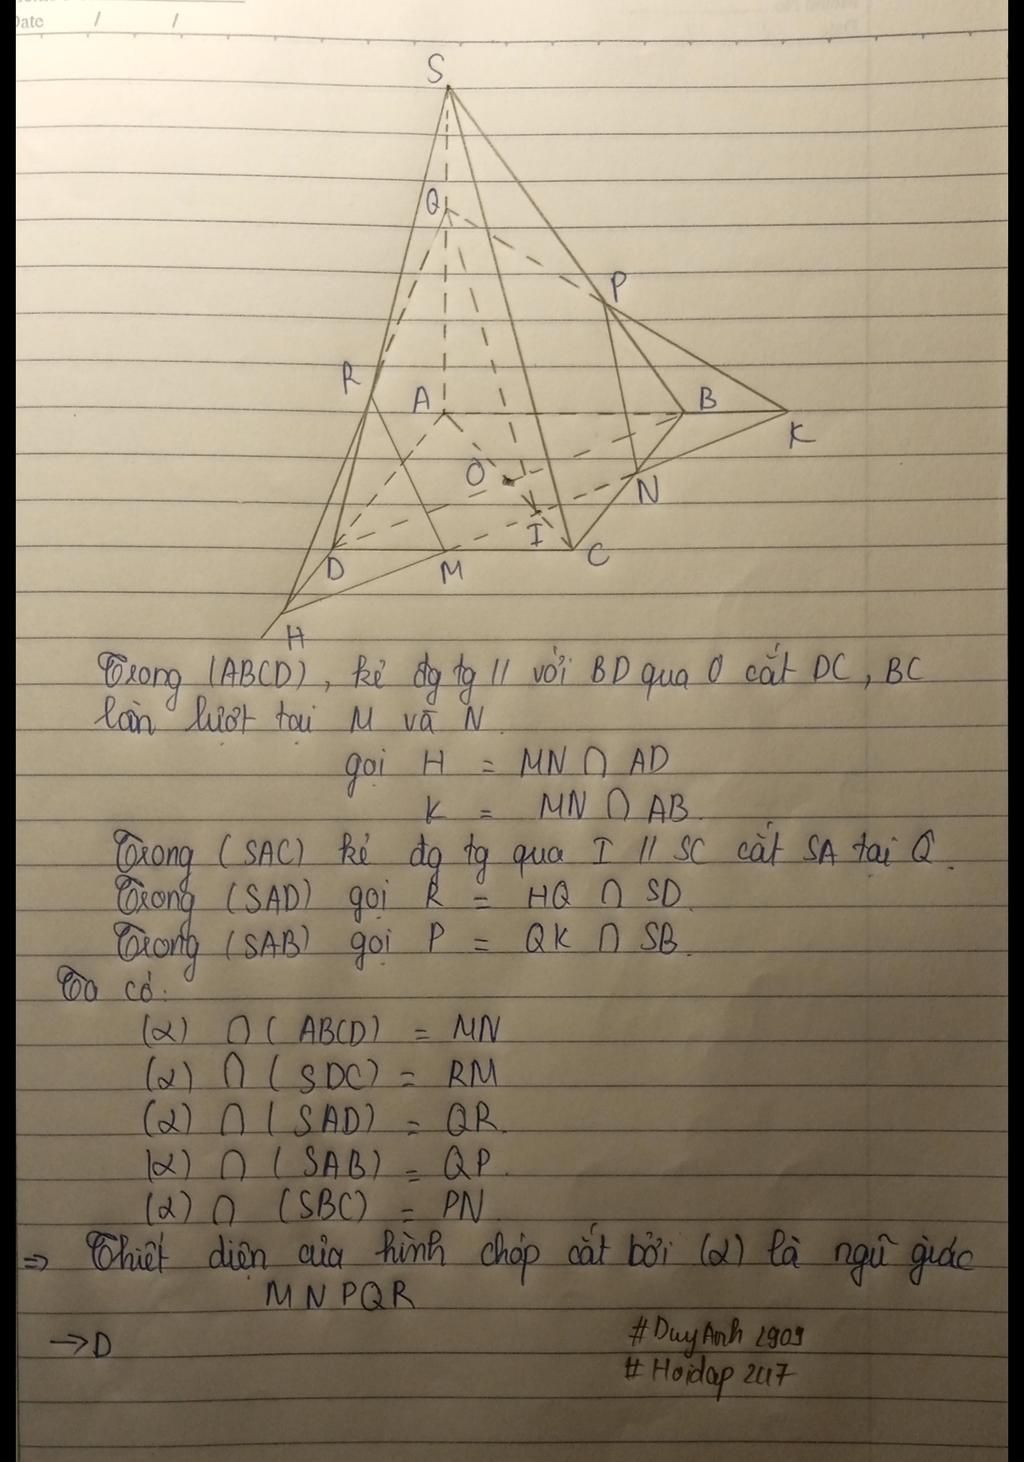 Date / /
S
Q
P
R
A
B
K
O
N
I
D
M
C
H
Trong (ABCD), kẻ đg tg // với BD qua O cắt DC, BC
lần lượt tại M và N.
gọi H = MN ∩ AD
K = MN ∩ AB.
Trong (SAC) kẻ đg tg qua I // SC cắt SA tại Q.
Trong (SAD) gọi R = HQ ∩ SD.
Trong (SAB) gọi P = QK ∩ SB.
Ta có:
(α) ∩ (ABCD) = MN
(α) ∩ (SDC) = RM
(α) ∩ (SAD) = QR.
(α) ∩ (SAB) = QP.
(α) ∩ (SBC) = PN
=> Thiết diện của hình chóp cắt bởi (α) là ngũ giác
MNPQR
→ D
#DuyAnh2909
#Hoidap247